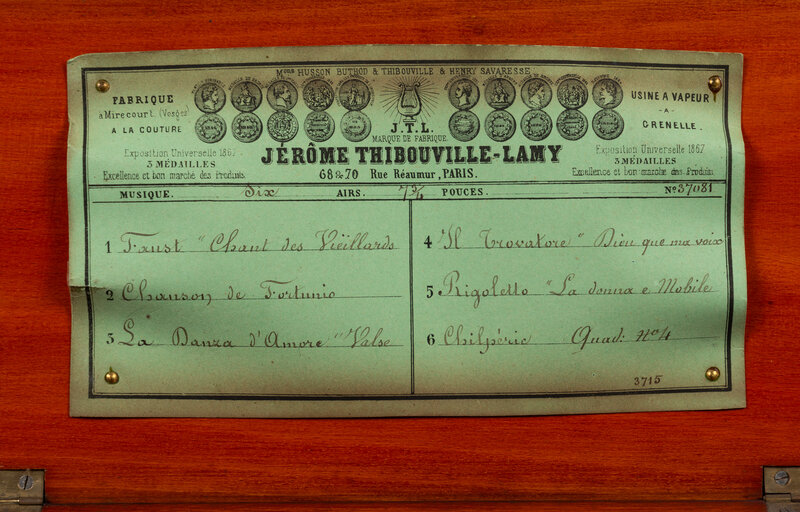 Mons HUSSON BUTHOD & THIBOUVILLE & HENRY SAVARESSE
FABRIQUE
à Mirecourt. (Vosges)
A LA COUTURE
USINE A VAPEUR
-A-
GRENELLE.
J.T.L.
MARQUE DE FABRIQUE
JÉRÔME THIBOUVILLE-LAMY
68 & 70 Rue Réaumur, PARIS.
Exposition Universelle 1867
3 MÉDAILLES
Excellence et bon marché des Produits
Exposition Universelle 1867
3 MÉDAILLES
Excellence et bon marché des Produits
MUSIQUE. Six AIRS. POUCES. No 37081
1 Faust "Chant des Vieillards
2 Chanson de Fortunio
3 La Danza d'Amore "Valse
4 Il Trovatore "Dieu que ma voix
5 Rigoletto "La donna e Mobile
6 Chilpéric Quad: No 4
3715